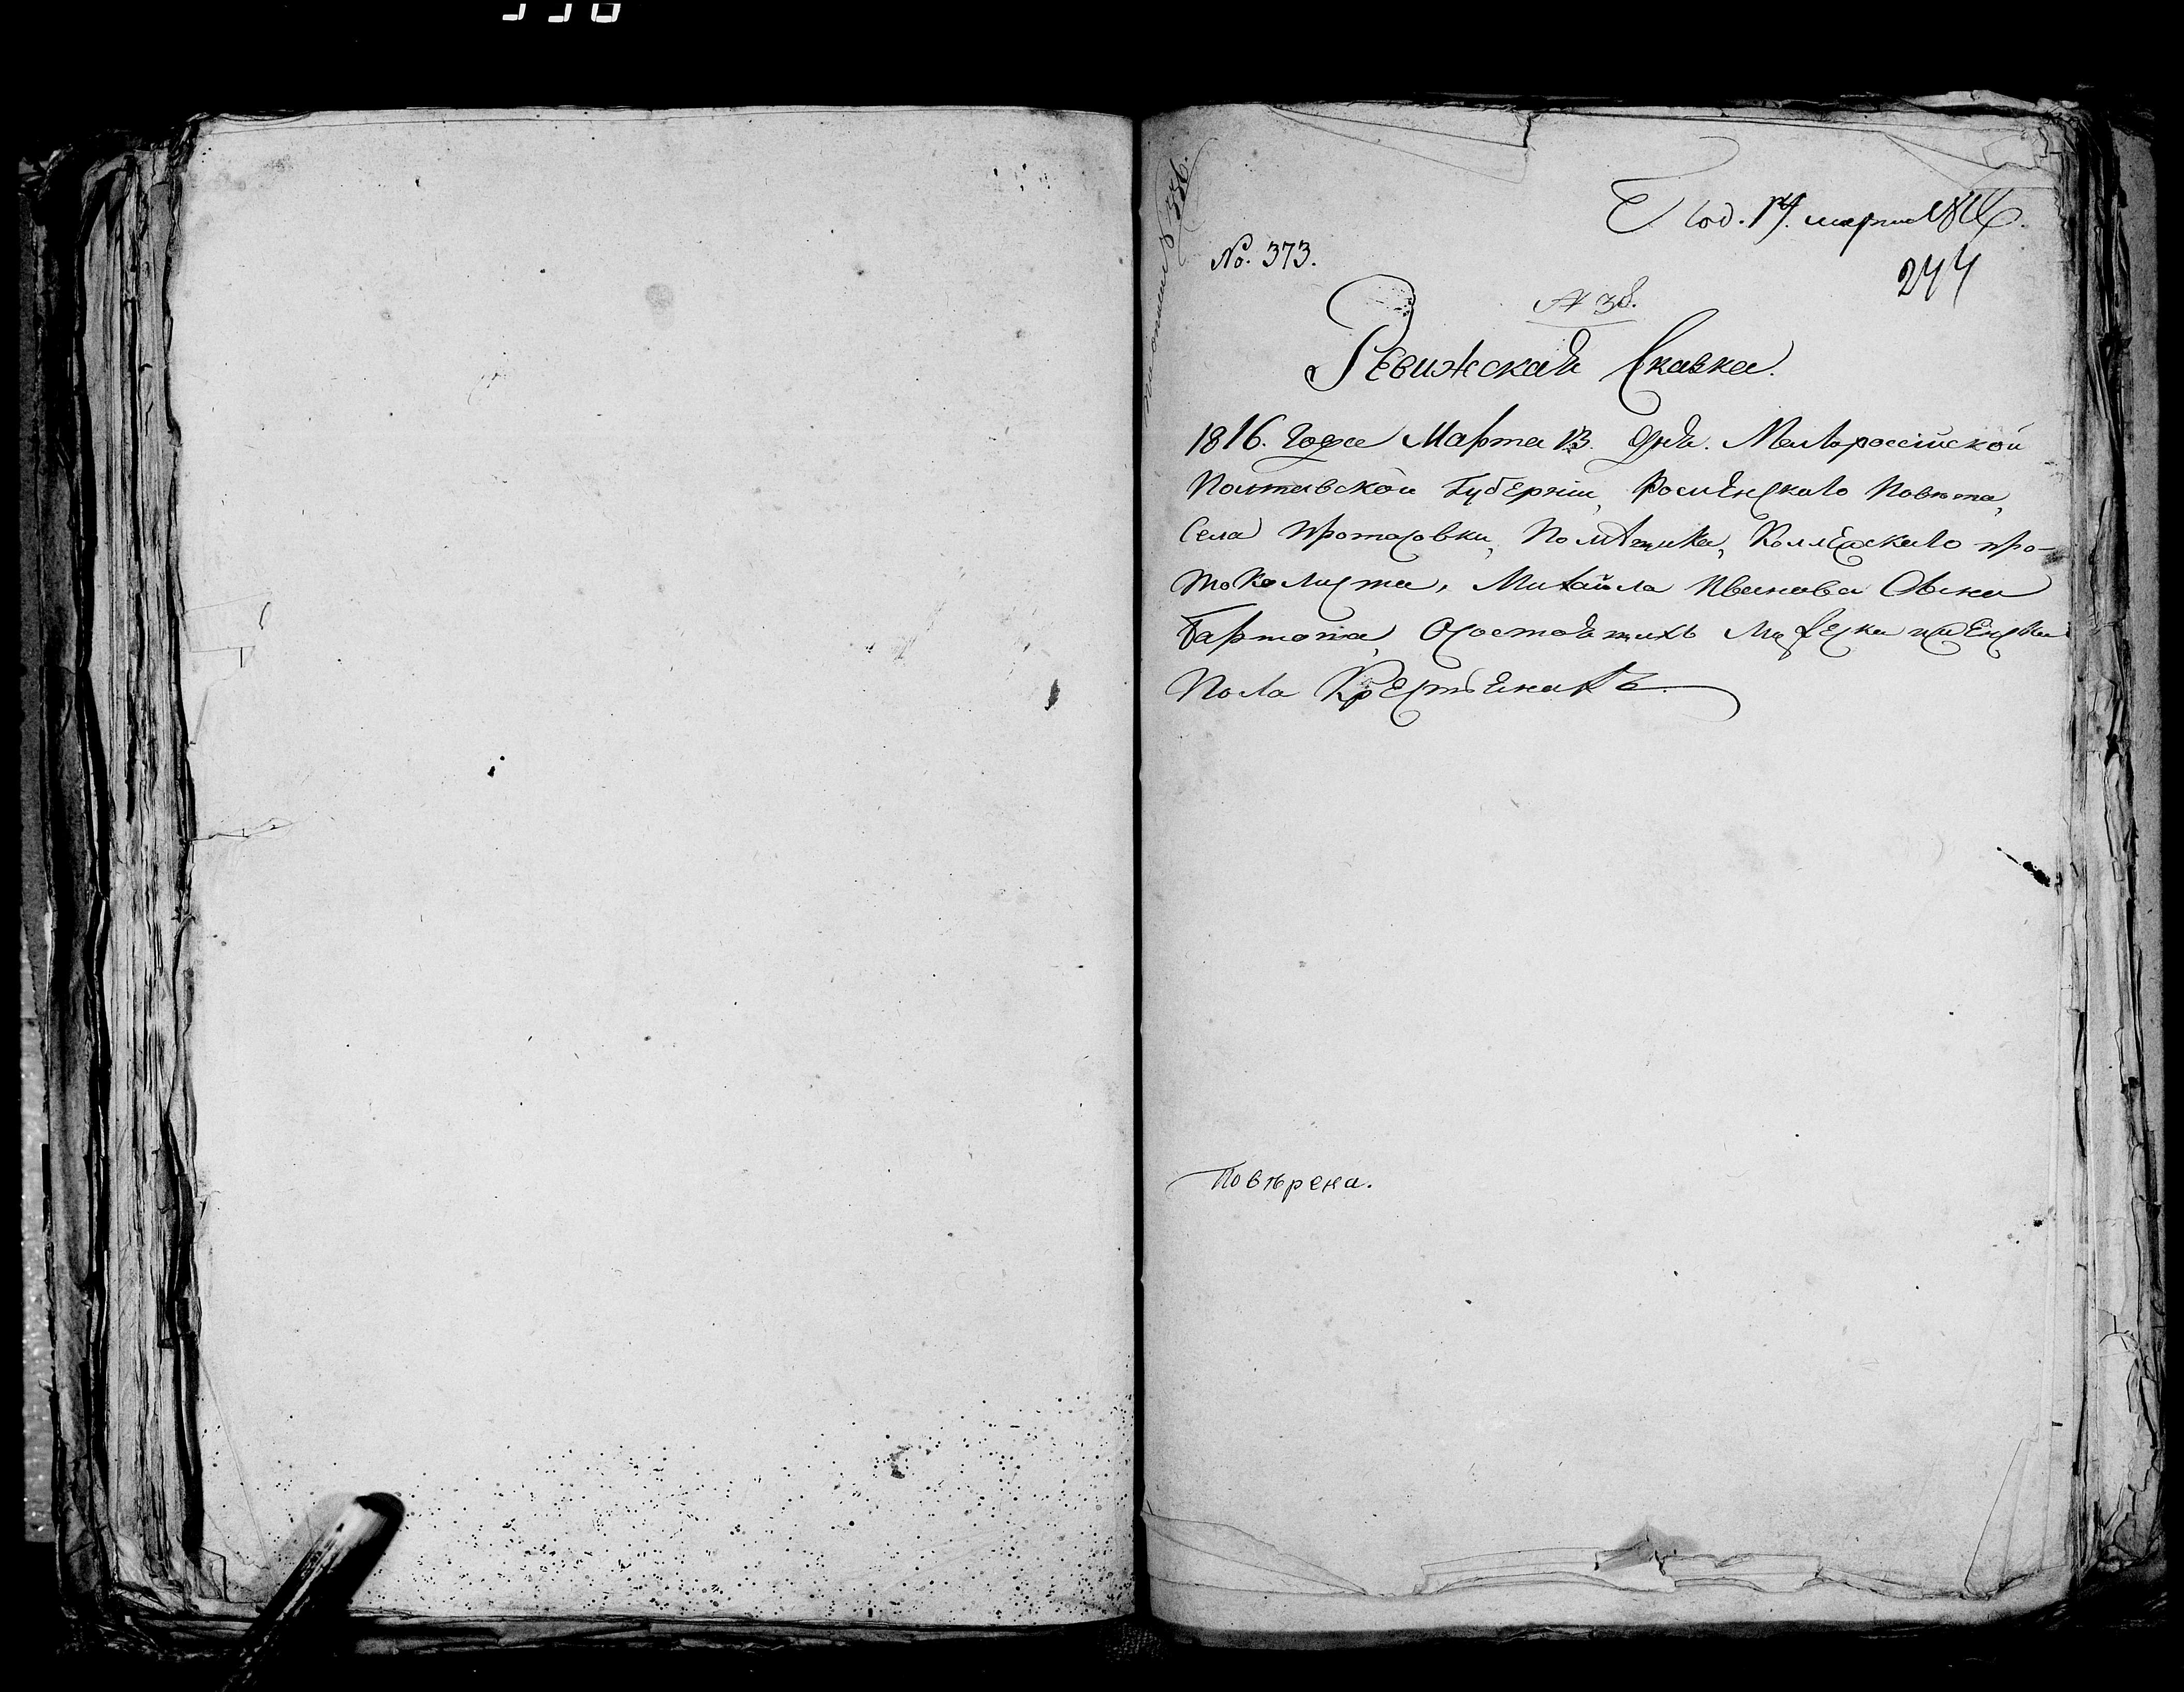 под. 14. марта 1816.
No. 373.
244
№ 38.
Ревижская Сказка.
1816. Года Марта 13. дня. Малороссійской
Полтавской Губерніи, Роменскаго Повѣта,
Села Протасовки, Помѣщика, Коллежскаго про-
токолиста, Михайла Иванова Сына
О состоящихъ мужеска и женска
Пола Крестьянахъ
Повѣрена.